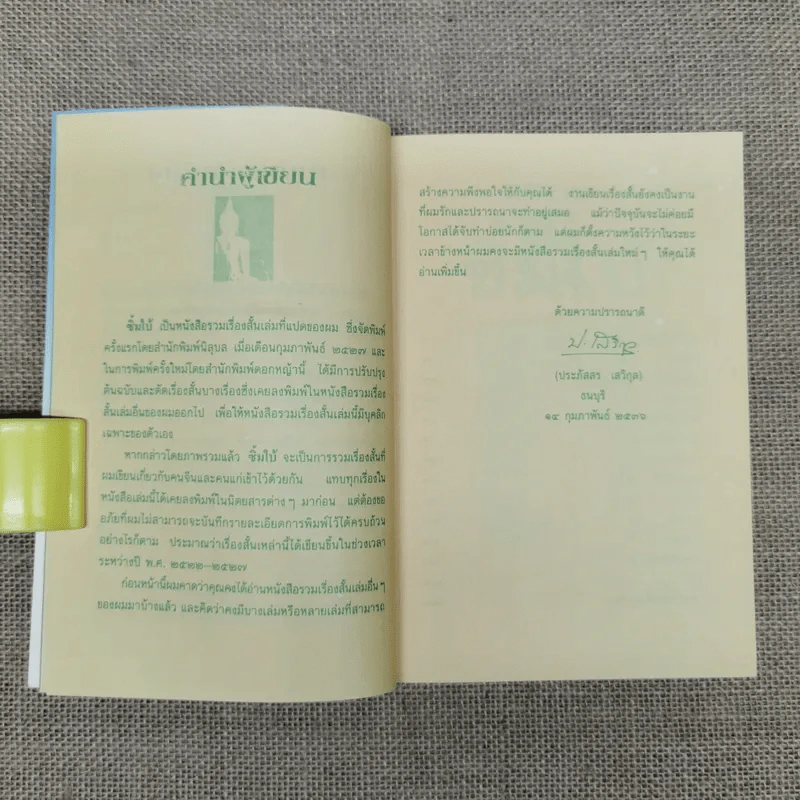 คำนำผู้เขียน
ซิ้มใบ้ เป็นหนังสือรวมเรื่องสั้นเล่มที่แปดของผม ซึ่งจัดพิมพ์
ครั้งแรกโดยสำนักพิมพ์นิลุบล เมื่อเดือนกุมภาพันธ์ ๒๕๒๗ และ
ในการพิมพ์ครั้งใหม่โดยสำนักพิมพ์ดอกหญ้านี้ ได้มีการปรับปรุง
ต้นฉบับและตัดเรื่องสั้นบางเรื่องซึ่งเคยลงพิมพ์ในหนังสือรวมเรื่อง
สั้นเล่มอื่นของผมออกไป เพื่อให้หนังสือรวมเรื่องสั้นเล่มนี้มีบุคลิก
เฉพาะของตัวเอง
หากกล่าวโดยภาพรวมแล้ว ซิ้มใบ้ จะเป็นการรวมเรื่องสั้นที่
ผมเขียนเกี่ยวกับคนจีนและคนแก่เข้าไว้ด้วยกัน แทบทุกเรื่องใน
หนังสือเล่มนี้ได้เคยลงพิมพ์ในนิตยสารต่างๆ มาก่อน แต่ต้องขอ
อภัยที่ผมไม่สามารถจะบันทึกรายละเอียดการพิมพ์ไว้ได้ครบถ้วน
อย่างไรก็ตาม ประมาณว่าเรื่องสั้นเหล่านี้ได้เขียนขึ้นในช่วงเวลา
ระหว่างปี พ.ศ. ๒๕๒๒-๒๕๒๗
ก่อนหน้านี้ผมคาดว่าคุณคงได้อ่านหนังสือรวมเรื่องสั้นเล่มอื่นๆ
ของผมมาบ้างแล้ว และคิดว่าคงมีบางเล่มหรือหลายเล่มที่สามารถ
สร้างความพึงพอใจให้กับคุณได้ งานเขียนเรื่องสั้นยังคงเป็นงาน
ที่ผมรักและปรารถนาจะทำอยู่เสมอ แม้ว่าปัจจุบันจะไม่ค่อยมี
โอกาสได้จับทำบ่อยนักก็ตาม แต่ผมก็ตั้งความหวังไว้ว่าในระยะ
เวลาข้างหน้าผมคงจะมีหนังสือรวมเรื่องสั้นเล่มใหม่ๆ ให้คุณได้
อ่านเพิ่มขึ้น
ด้วยความปรารถนาดี
(ประภัสสร เสวิกุล)
ธนบุรี
๑๔ กุมภาพันธ์ ๒๕๓๖